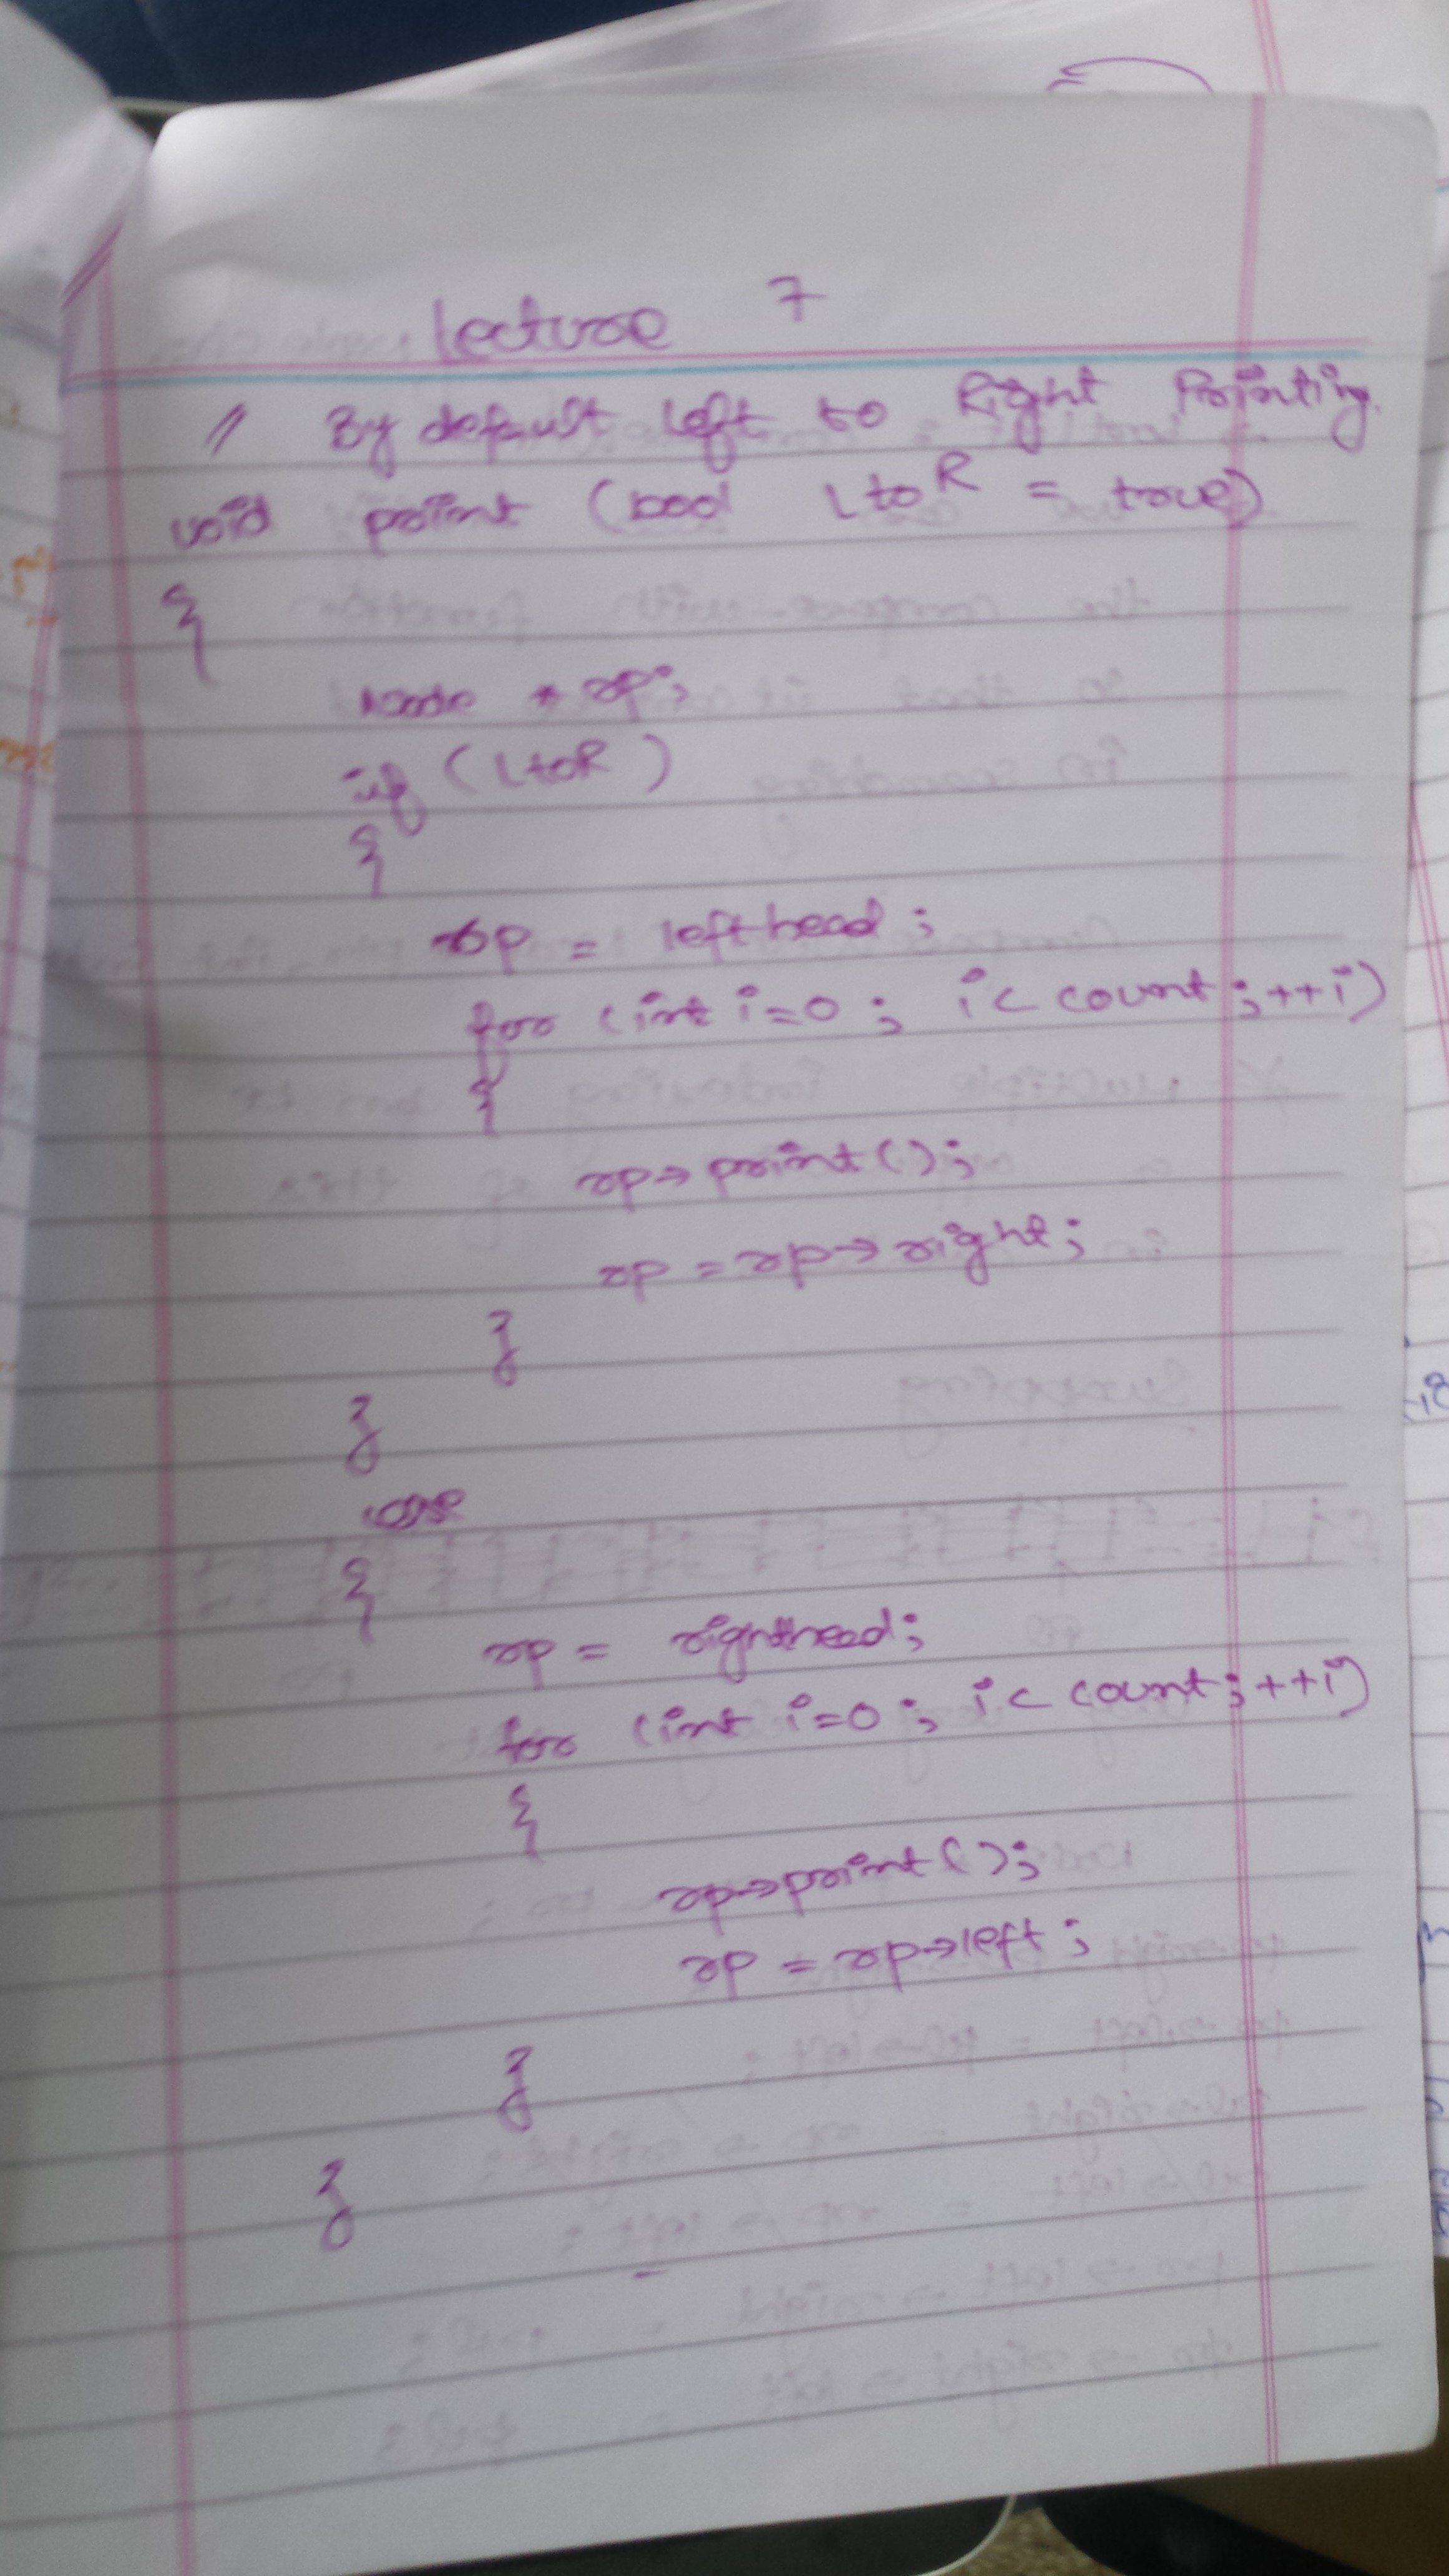 Lecture 7
// By default Left to Right Printing.
void print (bool LtoR = true)
{
Node * rp;
if (LtoR)
{
rp = lefthead;
for (int i=0; i< count; ++i)
{
rp→print();
rp = rp→right;
}
}
else
{
rp = righthead;
for (int i=0; i< count; ++i)
{
rp→print();
rp = rp→left;
}
}